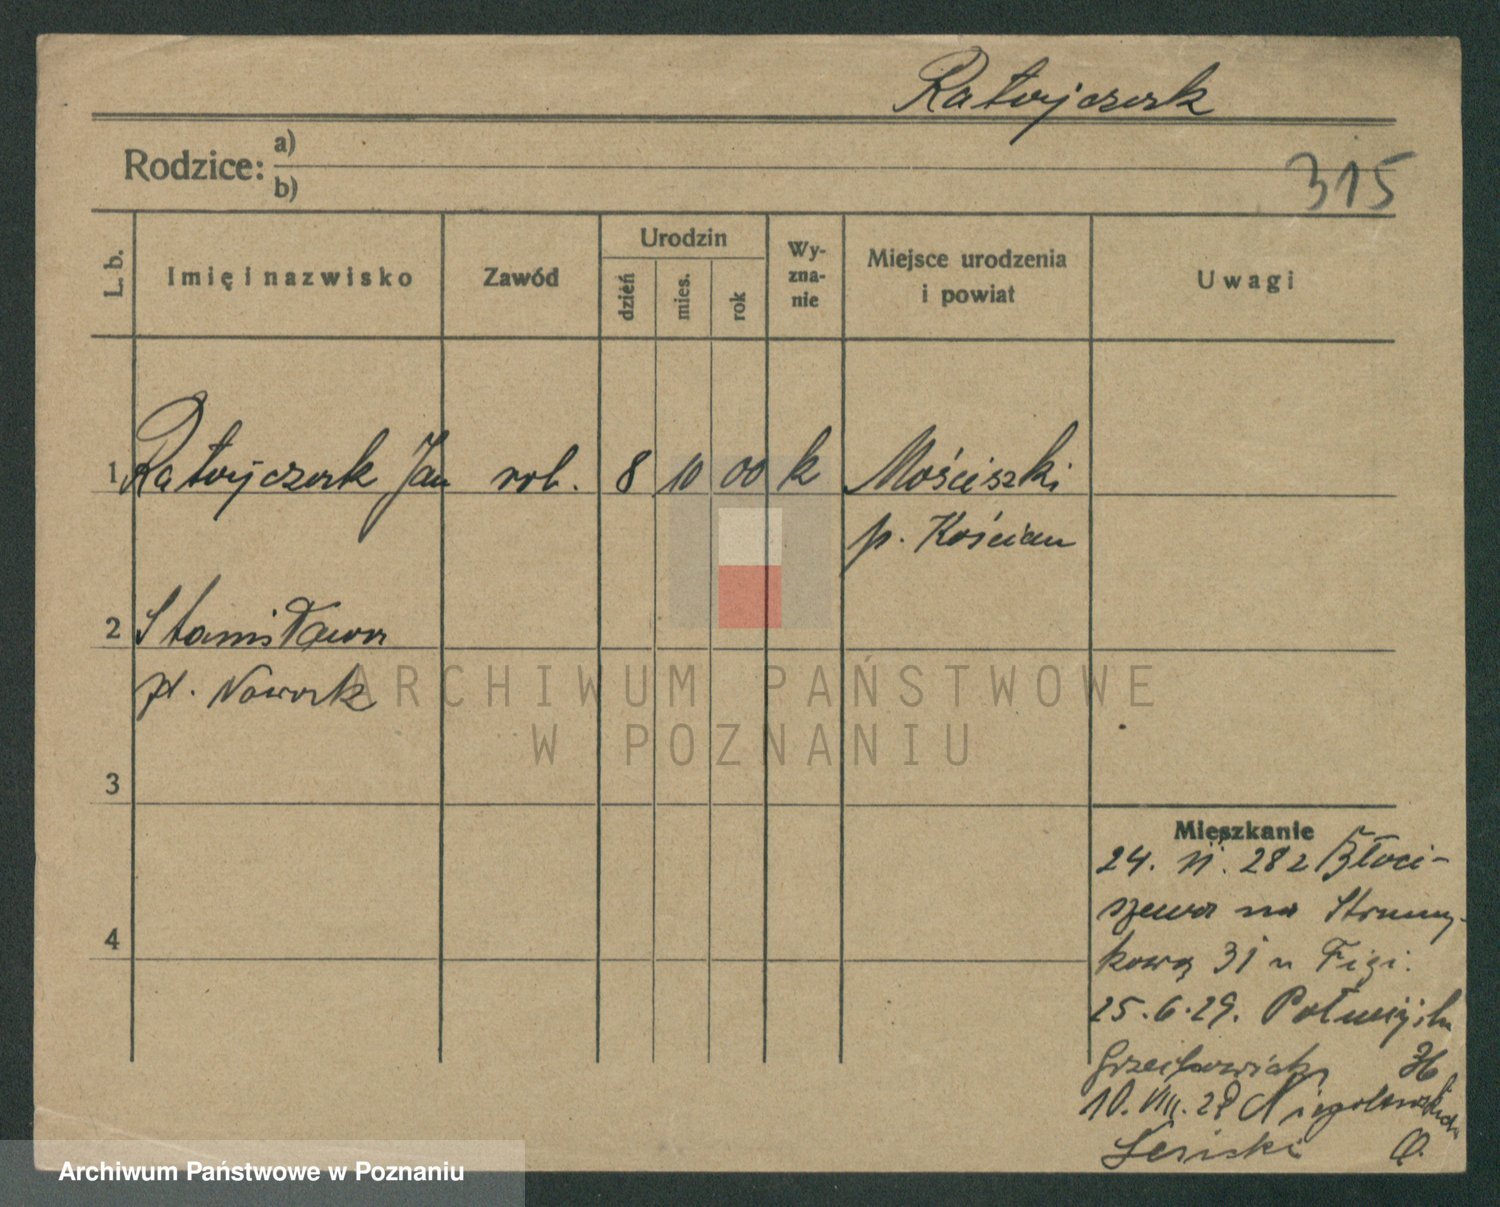 Ratajczak
Rodzice: a)
b)
315
L. b.
Imię i nazwisko
Zawód
Urodzin
dzień
mies.
rok
Wy-
zna-
nie
Miejsce urodzenia
i powiat
Uwagi
1 Ratajczak Jan rob. 8 10 00 k Mościszki
p. Kościan
2 Stanisława
zd. Nowak
3
4
Mieszkanie
24. VI. 28 z Błoci-
szewa na Strumy-
kową 31 u Figi.
25.6.29.
10. VIII. 29 Niegolewskich
ARCHIWUM PAŃSTWOWE
W POZNANIU
Archiwum Państwowe w Poznaniu